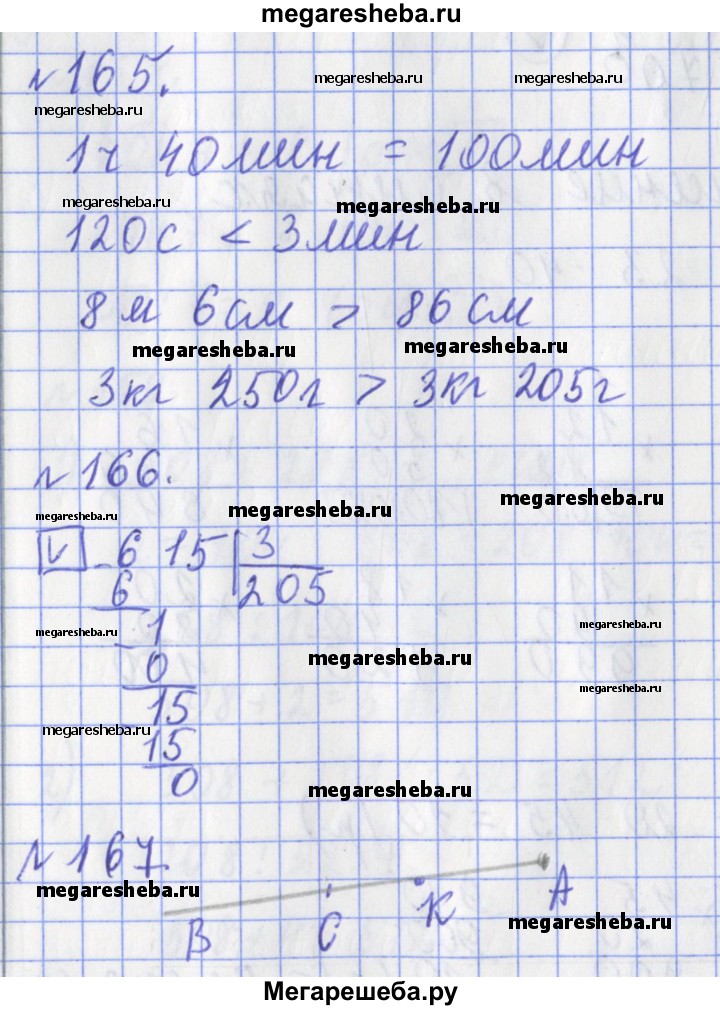 megaresheba.ru
№165.
megaresheba.ru megaresheba.ru
megaresheba.ru
1ч 40мин = 100мин
megaresheba.ru megaresheba.ru
120с < 3мин
8м 6см > 86см
megaresheba.ru megaresheba.ru
3кг 250г > 3кг 205г
№166.
megaresheba.ru megaresheba.ru megaresheba.ru
v - 615 | 3
6 205
megaresheba.ru - 1
0 megaresheba.ru
megaresheba.ru
15
megaresheba.ru 15
0 megaresheba.ru
№167
megaresheba.ru
B C K A
megaresheba.ru
Мегарешеба.ру